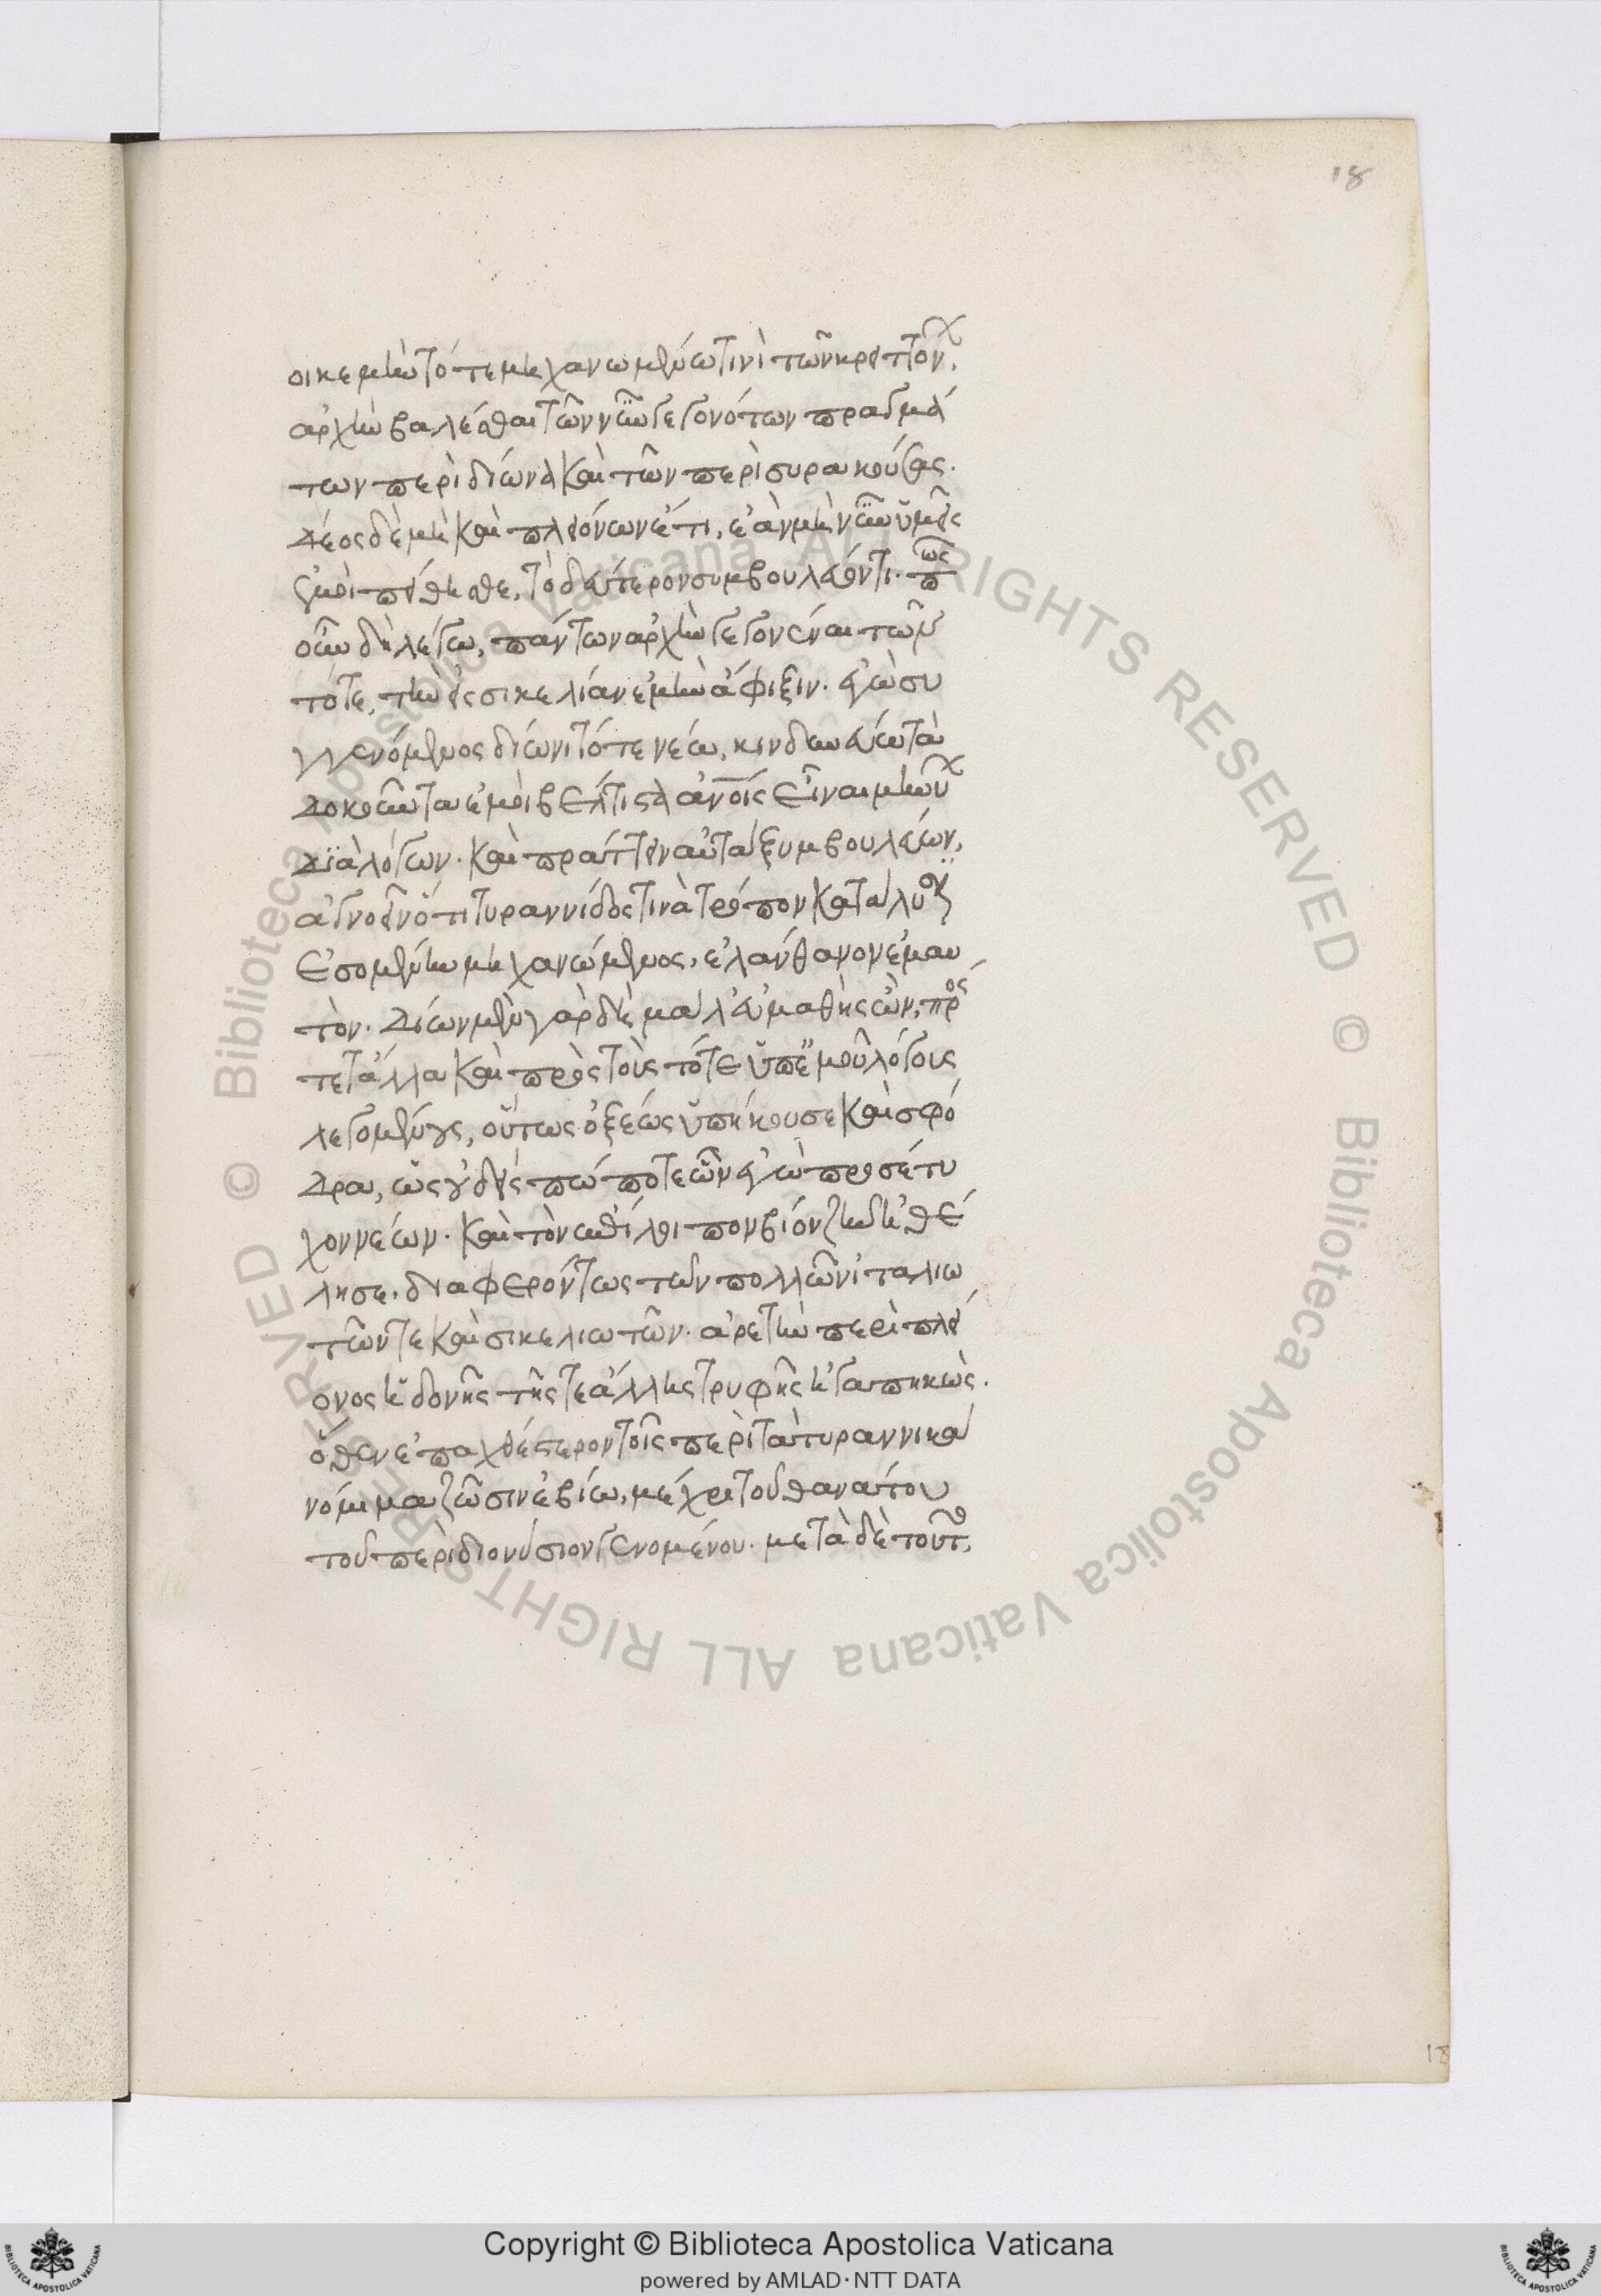 18
οικεμὴν τότε μηχανωμένω τινὶ τῶν κρειττόνων,
ἀρχὴν βαλέσθαι τῶν νῦν γεγονότων πραγμά
των περὶ δίωνα καὶ τῶν περὶ συρακούσας.
δέος δὲ μὴ καὶ πλειόνων ἔτι, ἐὰν μὴ νῦν ὑμεῖς
ἐμοὶ πείθησθε, τὸ δεύτερον συμβουλεύοντι. πῶς
οὖν δὴ λέγω, πάντων ἀρχὴν γεγονέναι τῶν
τότε, τὴν εἰς σικελίαν ἐμὴν ἄφιξιν. ἐγὼ συ
γγενόμενος δίωνι τότε νέω, κινδυνεύω τὰ
δοκοῦντα ἐμοὶ βέλτιστα ἀνοις εἶναι μηνύων
διὰ λόγων. καὶ πράττειν αὐτὰ ξυμβουλεύων,
ἀγνοεῖν ὅτι τυραννίδος τινὰ τρόπον κατάλυσιν
ἐσομένην μηχανώμενος, ἐλάνθανον ἐμαυ
τόν. δίων μὲν γὰρ δὴ μάλ' εὐμαθὴς ὢν, πρός
τε τἆλλα καὶ πρὸς τοὺς τότε ὑπ' ἐμοῦ λόγους
λεγομένους, οὕτως ὀξέως ὑπήκουσε καὶ σφό
δρα, ὡς οὐδεὶς πώποτε ὧν ἐγὼ προσέτυ
χον νέων. καὶ τὸν ἐπίλοιπον βίον ζῆν ἠθέ
λησε, διαφερόντως τῶν πολλῶν ἰταλιω
τῶν τε καὶ σικελιωτῶν. ἀρετὴν περὶ πλεί
ονος ἡδονῆς τῆς τε ἄλλης τρυφῆς ἠγαπηκὼς.
ὅθεν ἐπαχθέστερον τοῖς περὶ τὰ τυραννικὰ
νόμιμα ζῶσιν ἐβίω, μέχρι τοῦ θανάτου
τοῦ περὶ διονύσιον γενομένου. μετὰ δὲ τοῦτο,
18
© Biblioteca Apostolica Vaticana ALL RIGHTS RESERVED © Biblioteca Apostolica Vaticana ALL RIGHTS RESERVED
Copyright © Biblioteca Apostolica Vaticana
powered by AMLAD·NTT DATA
BIBLIOTECA APOSTOLICA VATICANA
BIBLIOTECA APOSTOLICA VATICANA